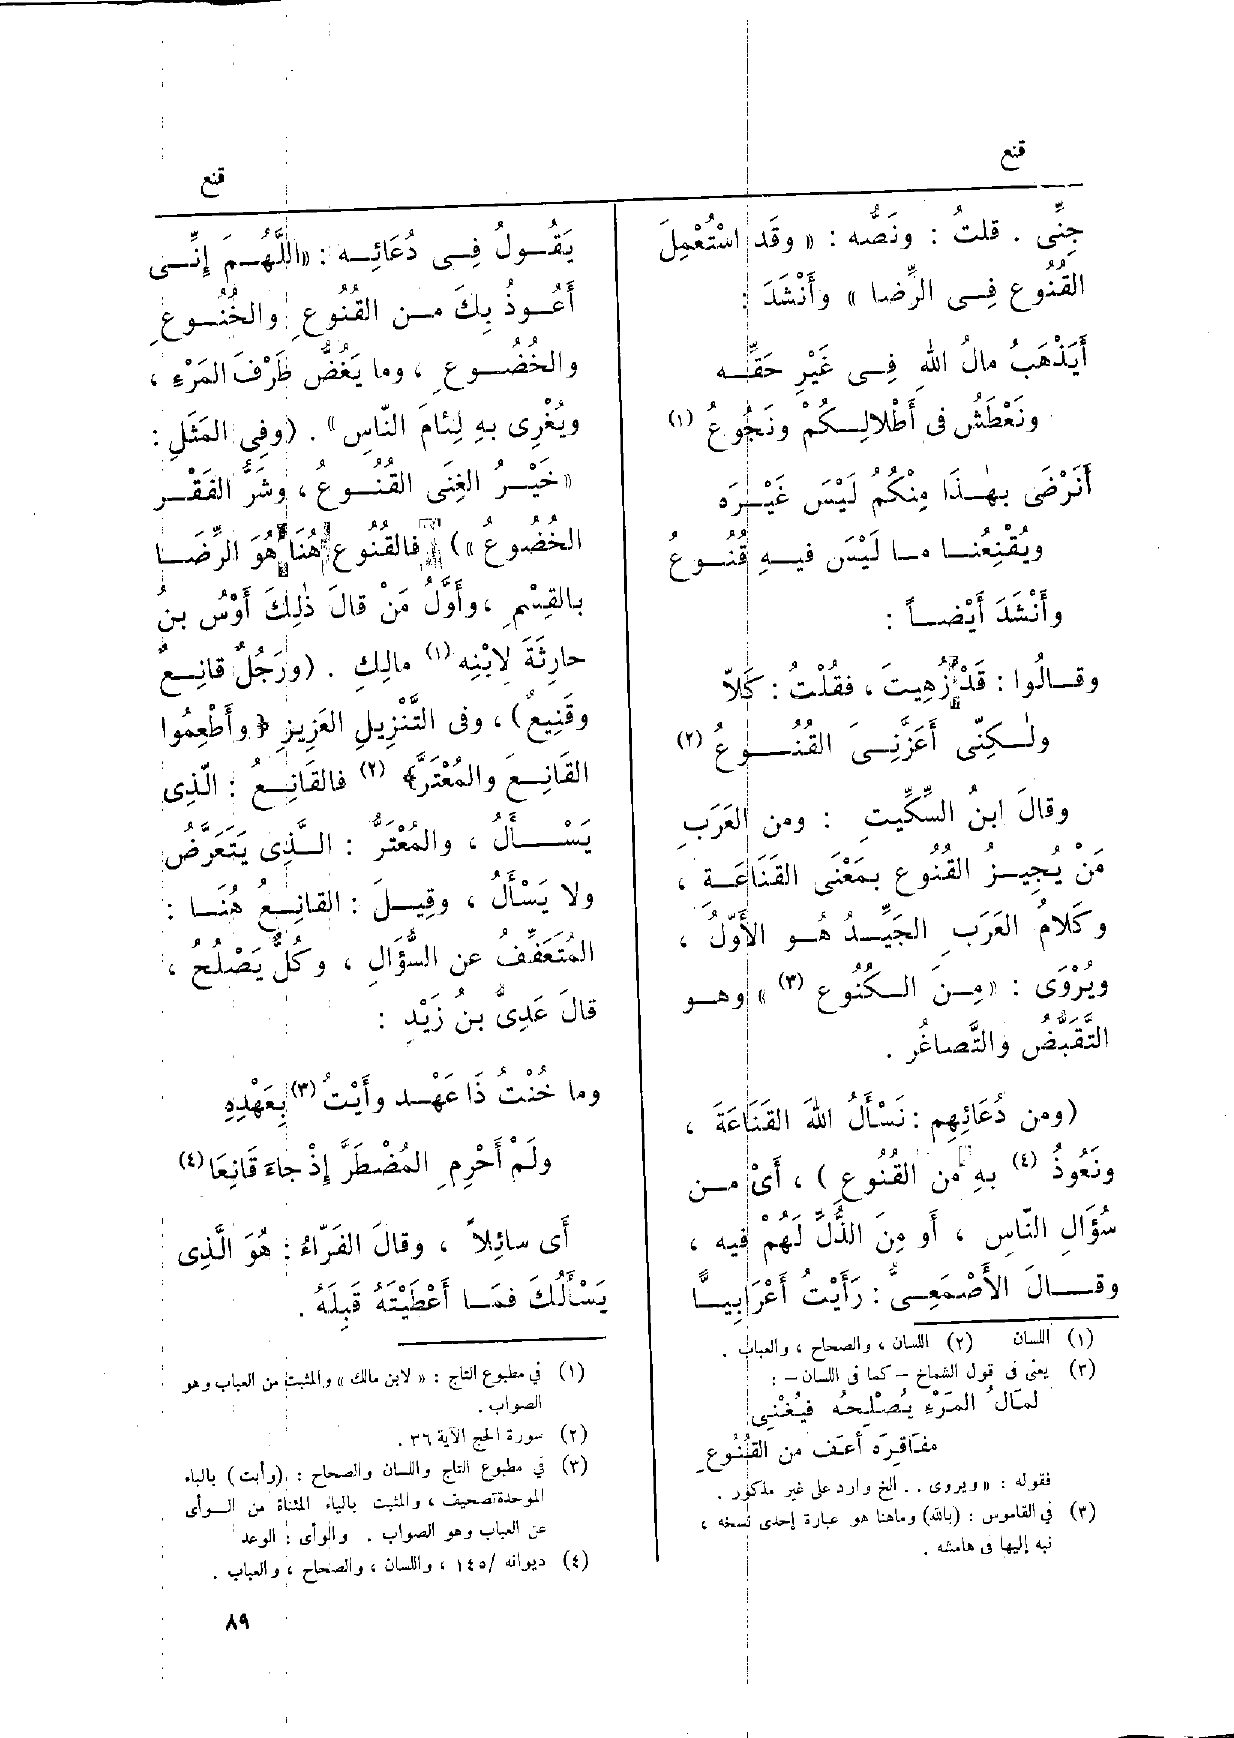 قنع
جِنِّى . قلتُ : ونَصُّه : « وقَد اسْتُعْمِلَ
القُنُوع فِى الرِّضا » وأَنْشَدَ :
أَيَذْهَبُ مالُ اللهِ فِى غَيْرِ حَقِّه
ونَعْطَشُ فى أَطْلالِكُمْ ونَجُوعُ (١)
أَنَرْضَى بهٰذَا مِنكُم لَيْسَ غَيْرَه
ويُقْنِعُنا ما لَيْسَ فيهِ قُنُوعُ
وأَنْشَدَ أَيْضاً :
وقالُوا : قَدْ زُهِيتَ ، فقُلْتُ : كَلاّ
ولٰكِنِّى أَعَزَّنِى القُنُوعُ (٢)
وقالَ ابنُ السِّكِّيتِ : ومن العَرَبِ
مَنْ يُجِيزُ القُنُوعَ بمَعْنَى القَنَاعَةِ ،
وكَلامُ العَرَبِ الجَيِّدُ هُو الأَوَّلُ ،
ويُرْوَى : « مِنَ الكُنُوعِ (٣) » وهو
التَّقَبُّضُ والتَّصاغُر .
(ومن دُعَائِهِم : نَسْأَلُ اللهَ القَنَاعَةَ ،
ونَعُوذُ (٤) بهِ من القُنُوعِ ) ، أَىْ من
سُؤَالِ النّاسِ ، أَو مِنَ الذُّلِّ لَهُمْ فيه ،
وقالَ الأَصْمَعِىُّ : رَأَيْتُ أَعْرَابِيًّا
(١) اللسان (٢) اللسان ، والصحاح ، والعباب .
(٣) يعنى فى قول الشماخ – كما فى اللسان – :
لَمَالُ المَرْءِ يُصْلِحُه فَيُغْنِى
مفَاقِرَه أعَفُّ من القُنُوعِ
فقوله : « ويروى . . الخ وارد على غير مذكور .
(٣) فى القاموس : (بالله) وماهنا هو عبارة إحدى نسخه ،
نبه إليها فى هامشه .
قنع
يَقُولُ فِى دُعَائِه : «اللَّهُمَ إِنِّى
أَعُوذُ بِكَ من القُنُوعِ والخُنُوعِ
والخُضُوعِ ، وما يَغُضُّ طَرْفَ المَرْءِ ،
ويُغْرِى بهِ لِئامَ النّاسِ» . (وفِى المَثَلِ :
«خَيْرُ الغِنَى القُنُوعُ ، وشَرُّ الفَقْرِ
الخُضُوعُ ») فالقُنُوعُ هُنَا هُوَ الرِّضَا
بالقِسْمِ ، وأَوَّلُ مَنْ قالَ ذٰلِكَ أَوْسُ بنُ
حارِثَةَ لِابْنِه (١) مالِكِ . (ورَجُلٌ قانِعٌ
وقَنِيعٌ) ، وفى التَّنْزِيلِ العَزِيزِ ﴿وأَطْعِمُوا
القَانِعَ والمُعْتَرَّ﴾ (٢) فالقَانِعُ : الّذِى
يَسْأَلُ ، والمُعْتَرُّ : الَّذِى يَتَعَرَّضُ
ولا يَسْأَلُ ، وقِيلَ : القانِعُ هُنَا :
المُتَعَفِّفُ عن السُّؤَالِ ، وكُلٌّ يَصْلُحُ ،
قالَ عَدِىُّ بنُ زَيْدٍ :
وما خُنْتُ ذَا عَهْدٍ وأَيْتُ (٣) بِعَهْدِهِ
ولَمْ أَحْرِمِ المُضْطَرَّ إِذْ جاءَ قَانِعَا (٤)
أَى سائِلاً ، وقالَ الفَرّاءُ : هُوَ الَّذِى
يَسْأَلُكَ فمَا أَعْطَيْتَهُ قَبِلَهُ .
(١) فى مطبوع التاج : « لابن مالك » والمثبت من العباب وهو
الصواب .
(٢) سورة الحج الآية ٣٦ .
(٣) فى مطبوع التاج واللسان والصحاح : (وأبت) بالباء
الموحدة تصحيف ، والمثبت بالياء المثناة من الوأى
عن العباب وهو الصواب . والوأى : الوعد
(٤) ديوانه /١٤٥ ، واللسان ، والصحاح ، والعباب .
٨٩